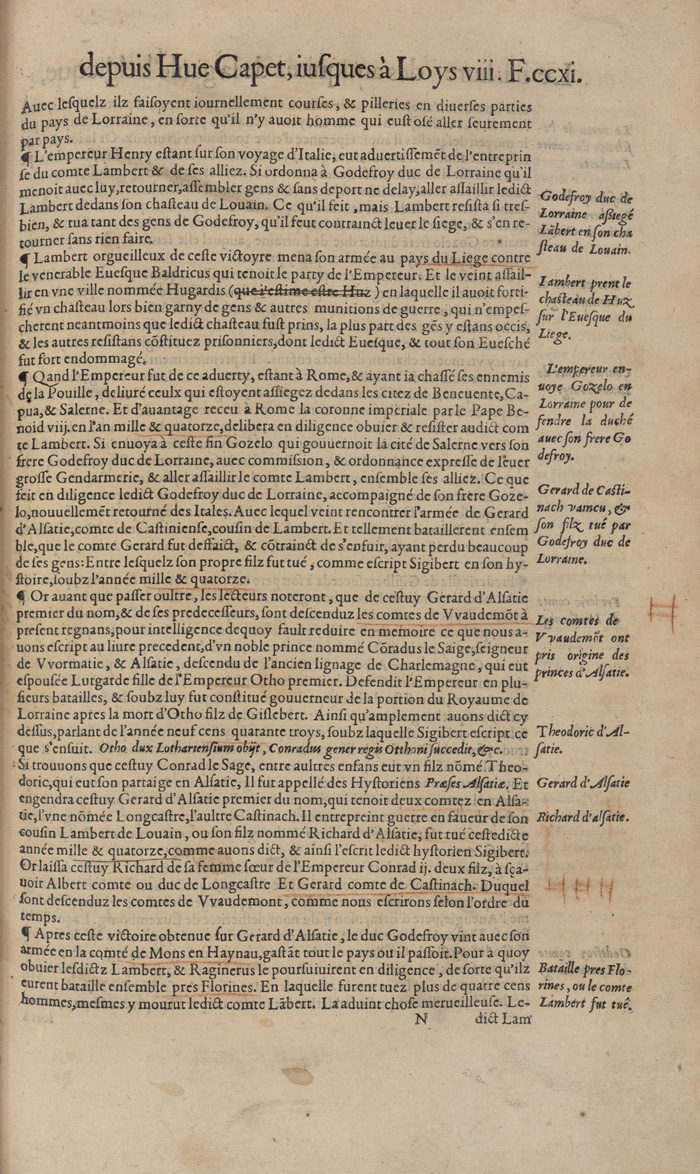 depuis Hue Capet, iuſques à Loys viii. F.ccxi.
Auec leſquelz ilz faiſoyent iournellement courſes, & pilleries en diuerſes parties
du pays de Lorraine, en ſorte qu'il n'y auoit homme qui euſt oſé aller ſeurement
par pays.
¶ L'empereur Henry eſtant ſur ſon voyage d'Italie, eut aduertiſſemẽt de l'entreprin
ſe du comte Lambert & de ſes alliez. Si ordonna à Godefroy duc de Lorraine qu'il
menoit auec luy, retourner, aſſembler gens & ſans deport ne delay, aller aſſaillir ledict
Lambert dedans ſon chaſteau de Louain. Ce qu'il feit, mais Lambert reſiſta ſi treſ-
bien, & tua tant des gens de Godefroy, qu'il feut contrainct leuer le ſiege, & s'en re-
tourner ſans rien faire.
Godefroy duc de
Lorraine aſsiegé
Lãbert en ſon cha
ſteau de Louain.
¶ Lambert orgueilleux de ceſte victoyre mena ſon armée au pays du Liege contre
le venerable Eueſque Baldricus qui tenoit le party de l'Empereur. Et le veint aſſail-
lir en vne ville nommée Hugardis (que i'eſtime eſtre Huz) en laquelle il auoit forti-
fié vn chaſteau lors bien garny de gens & autres munitions de guerre, qui n'empeſ-
cherent neantmoins que ledict chaſteau fuſt prins, la plus part des gẽs y eſtans occis,
& les autres reſiſtans cõſtituez priſonniers, dont ledict Eueſque, & tout ſon Eueſché
fut fort endommagé.
Lambert prent le
chaſteau de Huz
ſur l'Eueſque du
Liege.
¶ Qand l'Empereur fut de ce aduerty, eſtant à Rome, & ayant ia chaſſé ſes ennemis
de la Pouille, deliuré ceulx qui eſtoyent aſſiegez dedans les citez de Beneuente, Ca-
pua, & Salerne. Et d'auantage receu à Rome la coronne imperiale par le Pape Be-
noid viij. en l'an mille & quatorze, delibera en diligence obuier & reſiſter audict com
te Lambert. Si enuoya à ceſte fin Gozelo qui gouuernoit la cité de Salerne vers ſon
frere Godefroy duc de Lorraine, auec commiſsion, & ordonnance expreſſe de leuer
groſſe Gendarmerie, & aller aſſaillir le comte Lambert, enſemble ſes alliez. Ce que
feit en diligence ledict Godefroy duc de Lorraine, accompaigné de ſon frere Goze-
lo, nouuellemẽt retourné des Itales. Auec lequel veint rencontrer l'armée de Gerard
d'Alſatie, comte de Caſtinienſe, couſin de Lambert. Et tellement bataillerent enſem
ble, que le comte Gerard fut deffaict, & cõtrainct de s'enfuir, ayant perdu beaucoup
de ſes gens: Entre leſquelz ſon propre filz fut tué, comme eſcript Sigibert en ſon hy-
ſtoire, ſoubz l'année mille & quatorze.
L'empereur en-
uoye Gozelo en
Lorraine pour de
fendre la duché
auec ſon frere Go
defroy.
Gerard de Caſti-
nach vaincu, &
ſon filz tué par
Godefroy duc de
Lorraine.
¶ Or auant que paſſer oultre, les lecteurs noteront, que de ceſtuy Gerard d'Alſatie
premier du nom, & de ſes predeceſſeurs, ſont deſcenduz les comtes de Vvaudemõt à
preſent regnans, pour intelligence dequoy fault reduire en memoire ce que nous a-
uons eſcript au liure precedent, d'vn noble prince nommé Cõradus le Saige, ſeigneur
de Vvormatic, & Alſatie, deſcendu de l'ancien lignage de Charlemagne, qui eut
eſpouſée Lutgarde fille de l'Empereur Otho premier. Defendit l'Empereur en plu-
ſieurs batailles, & ſoubz luy fut conſtitué gouuerneur de la portion du Royaume de
Lorraine apres la mort d'Otho filz de Giſlebert. Ainſi qu'amplement auons dict cy
deſſus, parlant de l'année neuf cens quarante troys, ſoubz laquelle Sigibert eſcript ce
que s'enſuit. Otho dux Lothartenſium obijt, Conradus gener regis Otthoni ſuccedit, &c.
Les comtes de
Vvaudemõt ont
pris origine des
princes d'Alſatie.
Si trouuons que ceſtuy Conrad le Sage, entre aultres enfans eut vn filz nõmé Theo-
doric, qui eut ſon partaige en Alſatie, Il fut appellé des Hyſtoriens Præſes Alſatiæ. Et
engendra ceſtuy Gerard d'Alſatie premier du nom, qui tenoit deux comtez en Alſa-
tie, l'vne nõmée Longcaſtre, l'aultre Caſtinach. Il entrepreint guerre en faueur de ſon
couſin Lambert de Louain, ou ſon filz nommé Richard d'Alſatie, fut tué ceſtedicte
année mille & quatorze, comme auons dict, & ainſi l'eſcrit ledict hyſtorien Sigibert.
Or laiſſa ceſtuy Richard de ſa femme ſœur de l'Empereur Conrad ij. deux filz, à ſça-
uoir Albert comte ou duc de Longcaſtre Et Gerard comte de Caſtinach. Duquel
ſont deſcenduz les comtes de Vvaudemont, comme nous eſcrirons ſelon l'ordre du
temps.
Theodoric d'Al-
ſatie.
Gerard d'Alſatie
Richard d'alſatie.
¶ Apres ceſte victoire obtenue ſur Gerard d'Alſatie, le duc Godefroy vint auec ſon
armée en la comté de Mons en Haynau, gaſtãt tout le pays ou il paſſoit. Pour à quoy
obuier leſdictz Lambert, & Raginerus le pourſuiuirent en diligence, de ſorte qu'ilz
eurent bataille enſemble pres Florines. En laquelle furent tuez plus de quatre cens
hommes, meſmes y mourut ledict comte Lãbert. La aduint choſe merueilleuſe. Le-
Bataille pres Flo-
rines, ou le comte
Lambert fut tué.
N dict Lam